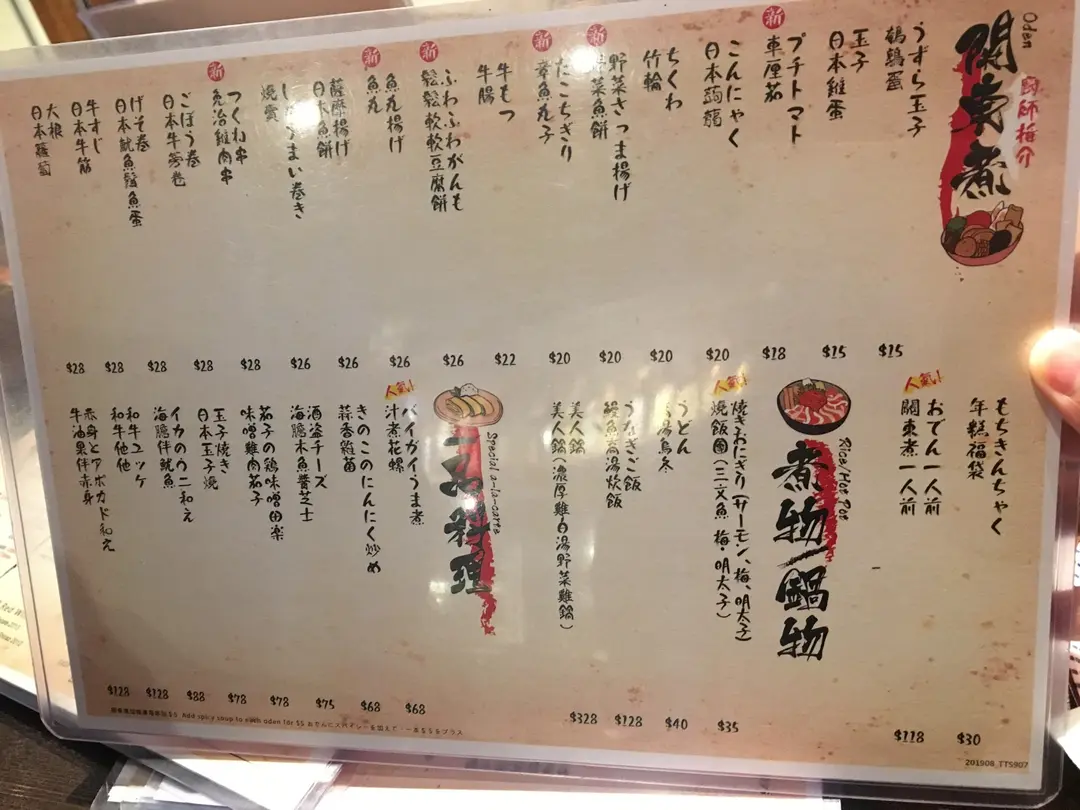 Oden
關東煮
廚師推介
うずら玉子
鵪鶉蛋
$15
玉子
日本雞蛋
$15
新
プチトマト
車厘茄
$18
こんにゃく
日本蒟蒻
$20
ちくわ
竹輪
$20
新
野菜さつま揚げ
野菜魚餅
$20
新
たこちぎり
章魚丸子
$20
牛もつ
牛腸
$22
新
ふわふわがんも
鬆鬆軟軟豆腐餅
$26
新
魚丸揚げ
魚丸
$26
薩摩揚げ
日本魚餅
$26
しゅうまい巻き
燒賣
$26
新
つくね串
免治雞肉串
$28
ごぼう巻
日本牛蒡卷
$28
げそ巻
日本魷魚鬚魚蛋
$28
牛すじ
日本牛筋
$28
大根
日本蘿蔔
$28
もちきんちゃく
年糕福袋
$30
人氣!
おでん一人前
關東煮一人前
$118
Rice/Hot Pot
煮物/鍋物
人氣!
焼きおにぎり(サーモン、梅、明太子)
燒飯團(三文魚 梅・明太子)
$35
うどん
湯烏冬
$40
うなぎご飯
鰻魚高湯炊飯
$128
美人鍋
美人鍋(濃厚雞白湯野菜雞鍋)
$328
Special a-la-carte
一品料理
人氣!
バイガイうま煮
汁煮花螺
$68
きのこのにんにく炒め
蒜香雜菌
$68
酒盗チーズ
海膽木魚醬芝士
$75
茄子の鶏味噌田楽
味噌雞肉茄子
$78
玉子焼き
日本玉子燒
$78
イカのウニ和え
海膽伴魷魚
$88
和牛ユッケ
和牛他他
$128
赤身とアボカド和え
牛油果伴赤身
$128
Add spicy soup to each odan for $5 おでんにスパイシーを加えて、一本$5をプラス
201908_TTS907